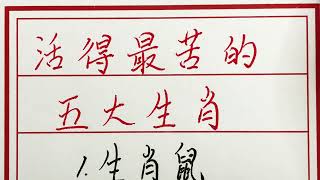 活得最苦的
五大生肖
1.生肖鼠